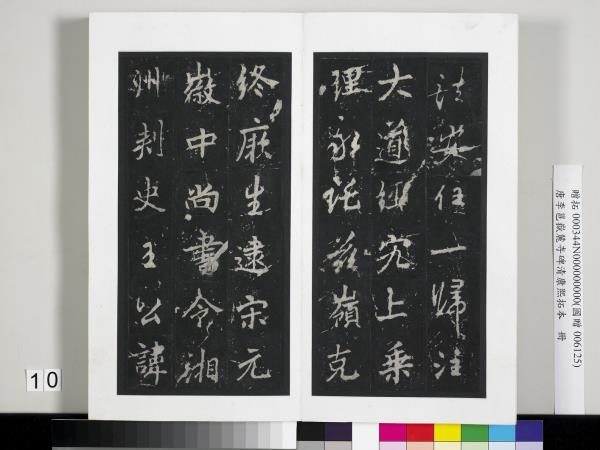 安住一歸注
大道經究上乘
理永託茲嶺克
終厥生逮宋元
徽中尚書令湘
州刺史王公諱
贈拓 000344N000000000(國贈 006125)
唐李邕嶽麓寺碑清康熙拓本　冊
10